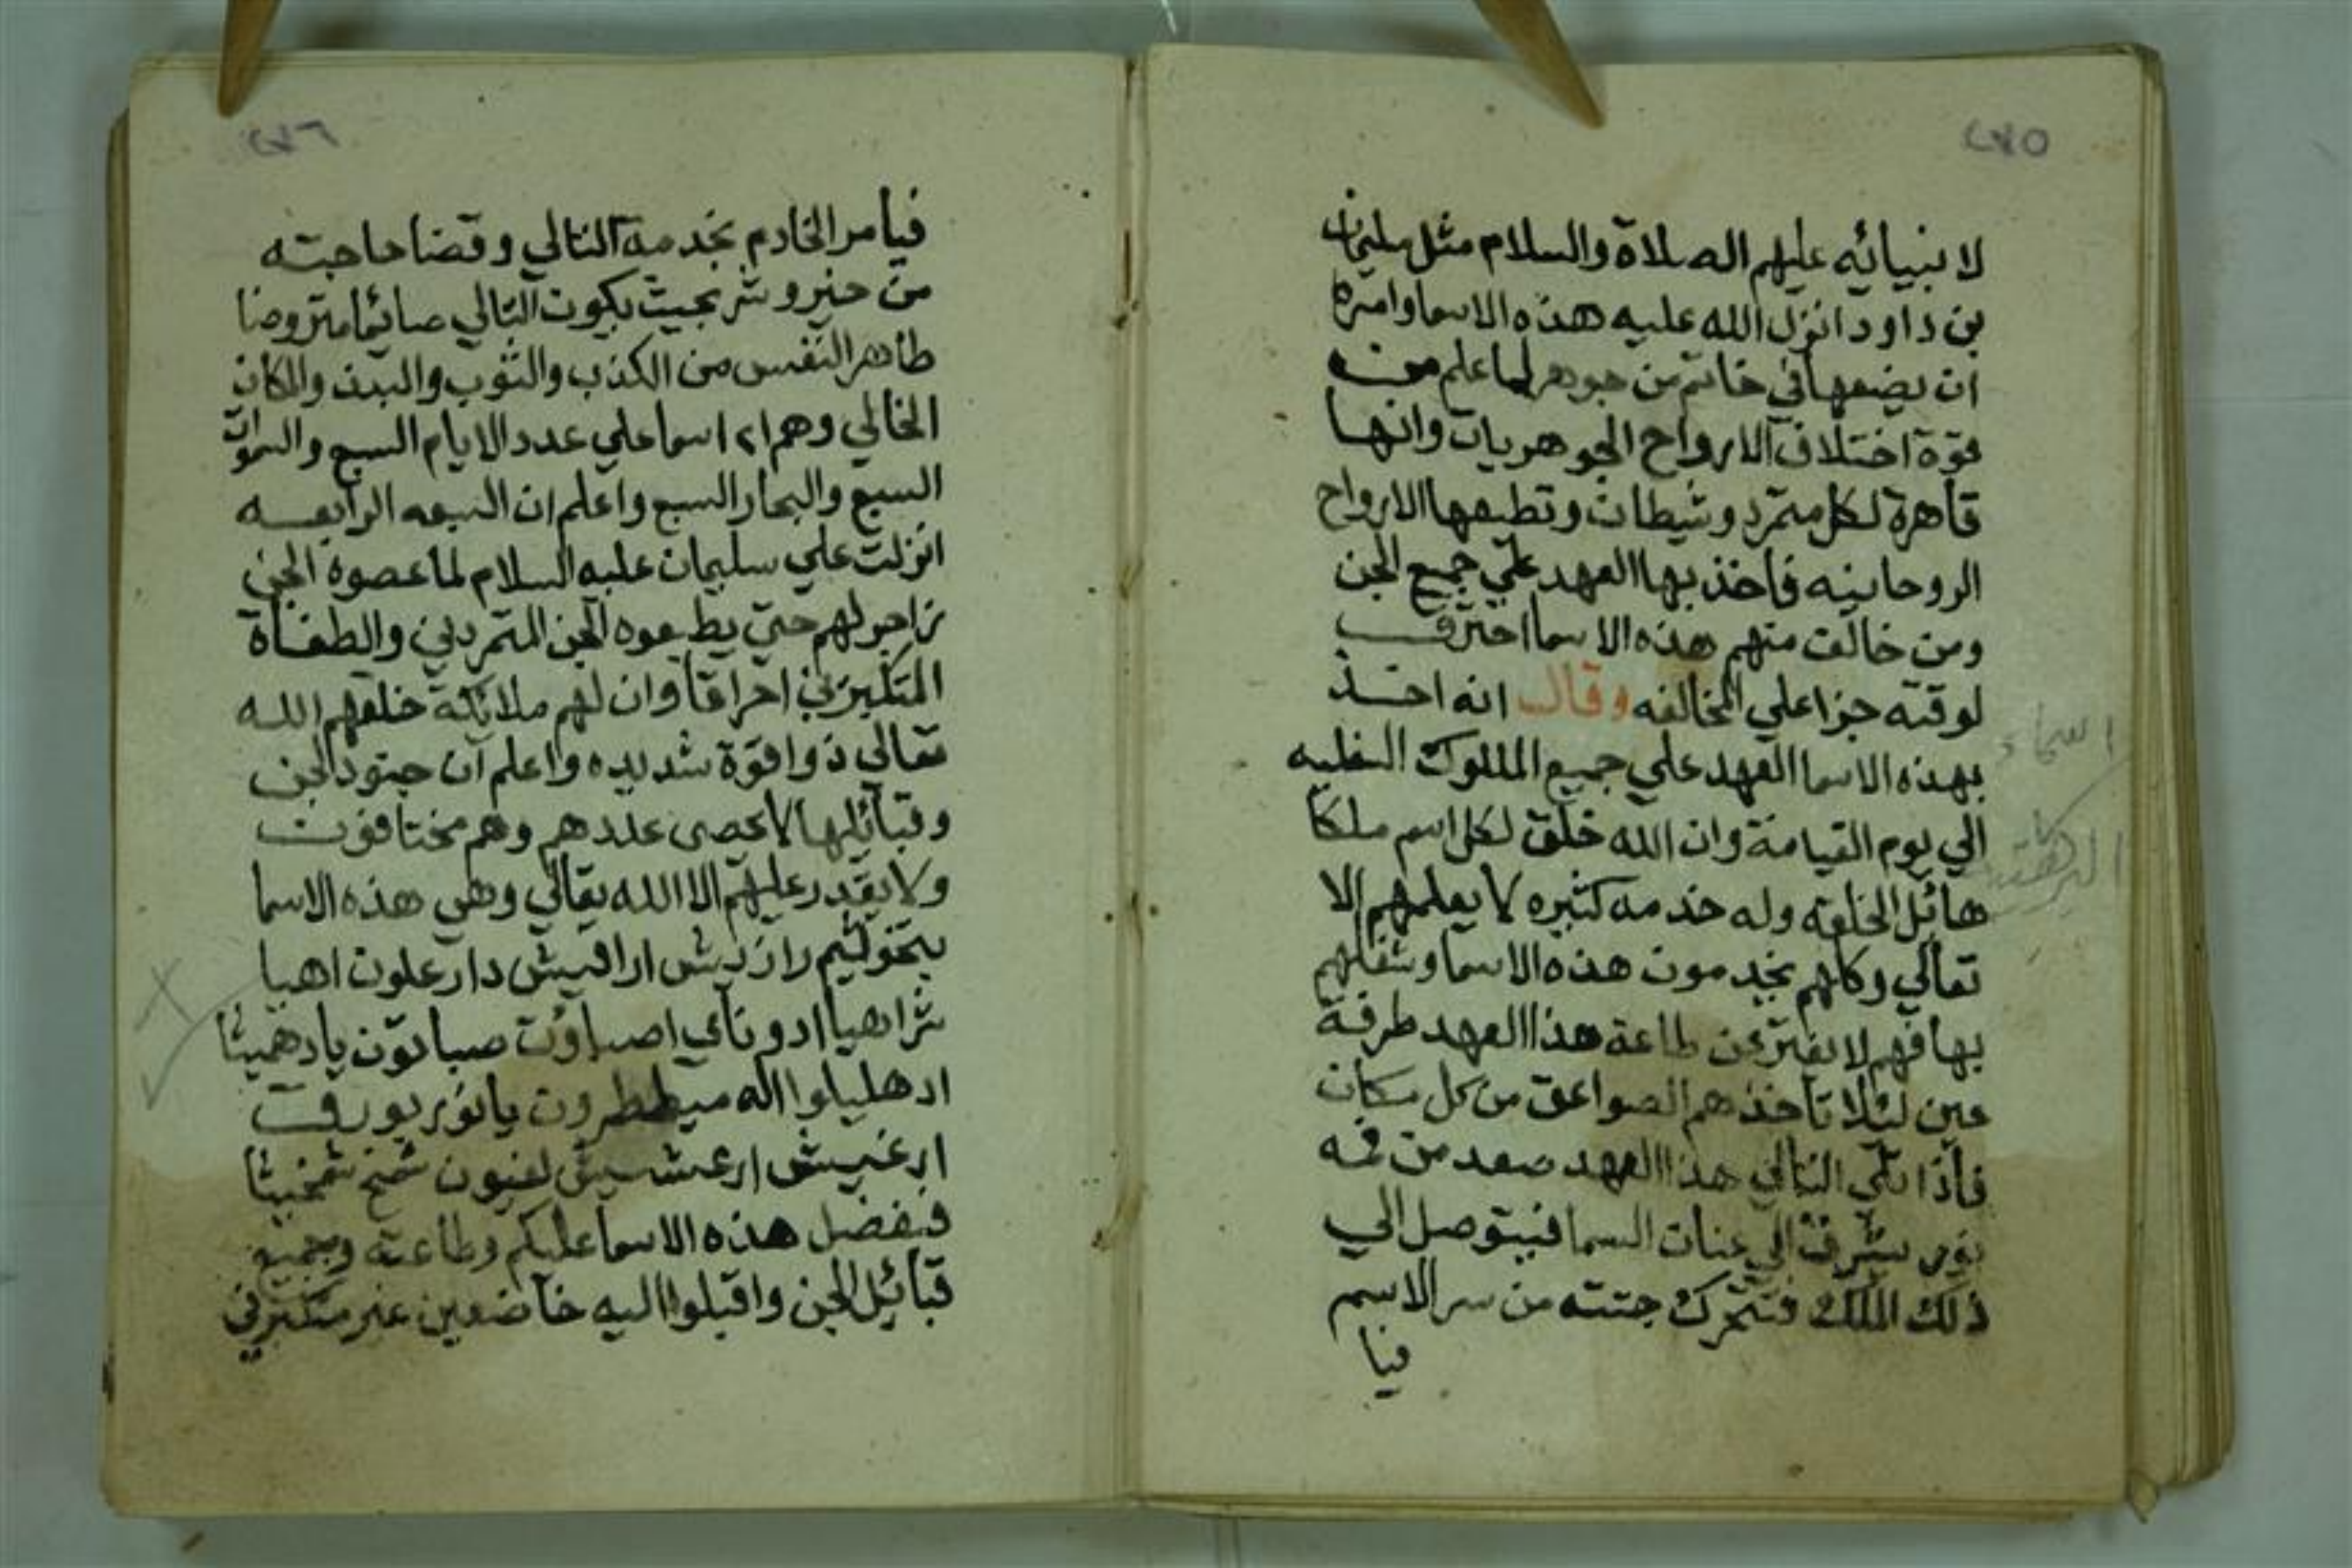 ٢٧٥
لانبيائه عليهم الصلاة والسلام مثل سليمان
بن داود انزل الله عليه هذه الاسما وامره
ان يضعها في خاتم من جوهر لما علم من
قوة اختلاف الارواح الجوهريات وانها
قاهرة لكل متمرد وشيطان وتطيعها الارواح
الروحانيه فاخذ بها العهد علي جميع الجن
ومن خالف منهم هذه الاسما احترق
لوقته جزا علي المخالفه وقال انه اخذ
بهذه الاسما العهد علي جميع الملوك السفليه
الي يوم القيامة وان الله خلق لكل اسم ملكا
هائل الخلقه وله خدمه كثيره لا يعلمهم الا
تعالي وكلهم يخدمون هذه الاسما وشغلهم
بها فهم لا يفتر عن طاعة هذا العهد طرفة
عين ليلا تاخذهم الصواعق من كل مكان
فاذا تلي التالي هذا العهد صعد من فمه
نور يشرق الي عنان السما فيتوصل الي
ذلك الملك فتتحرك جتته من سر الاسم
فيا
اسماء
٢٧٦
فيامر الخادم بخدمة التالي وقضا حاجته
من خير وشر بحيث يكون التالي صائما متروضا
طاهر النفس من الكذب والثوب والبدن والمكان
الخالي وهم ٢١ اسما علي عدد الايام السبع والسموات
السبع والبحار السبع واعلم ان السبعه الرابعه
انزلت علي سليمان عليه السلام لما عصوه الجن
زاجر لهم حتي يطيعوه الجن المتمردين والطغاة
المتكبرين احراقا وان لهم ملائكة خلقهم الله
تعالي ذوا قوة شديده واعلم ان جنود الجن
وقبائلها لا يحصى عددهم وهم مختلفون
ولا يقدر عليهم الا الله تعالي وهي هذه الاسما
اراقيش دارعلون اهيا
شراهيا ادوناي اصباوت صباوت
اله ميططرون يا نور
ارغيش ارعشيش شمخ
فبفضل هذه الاسما عليكم وطاعته وجميع
قبائل الجن واقبلوا اليه خاضعين غير متكبرين